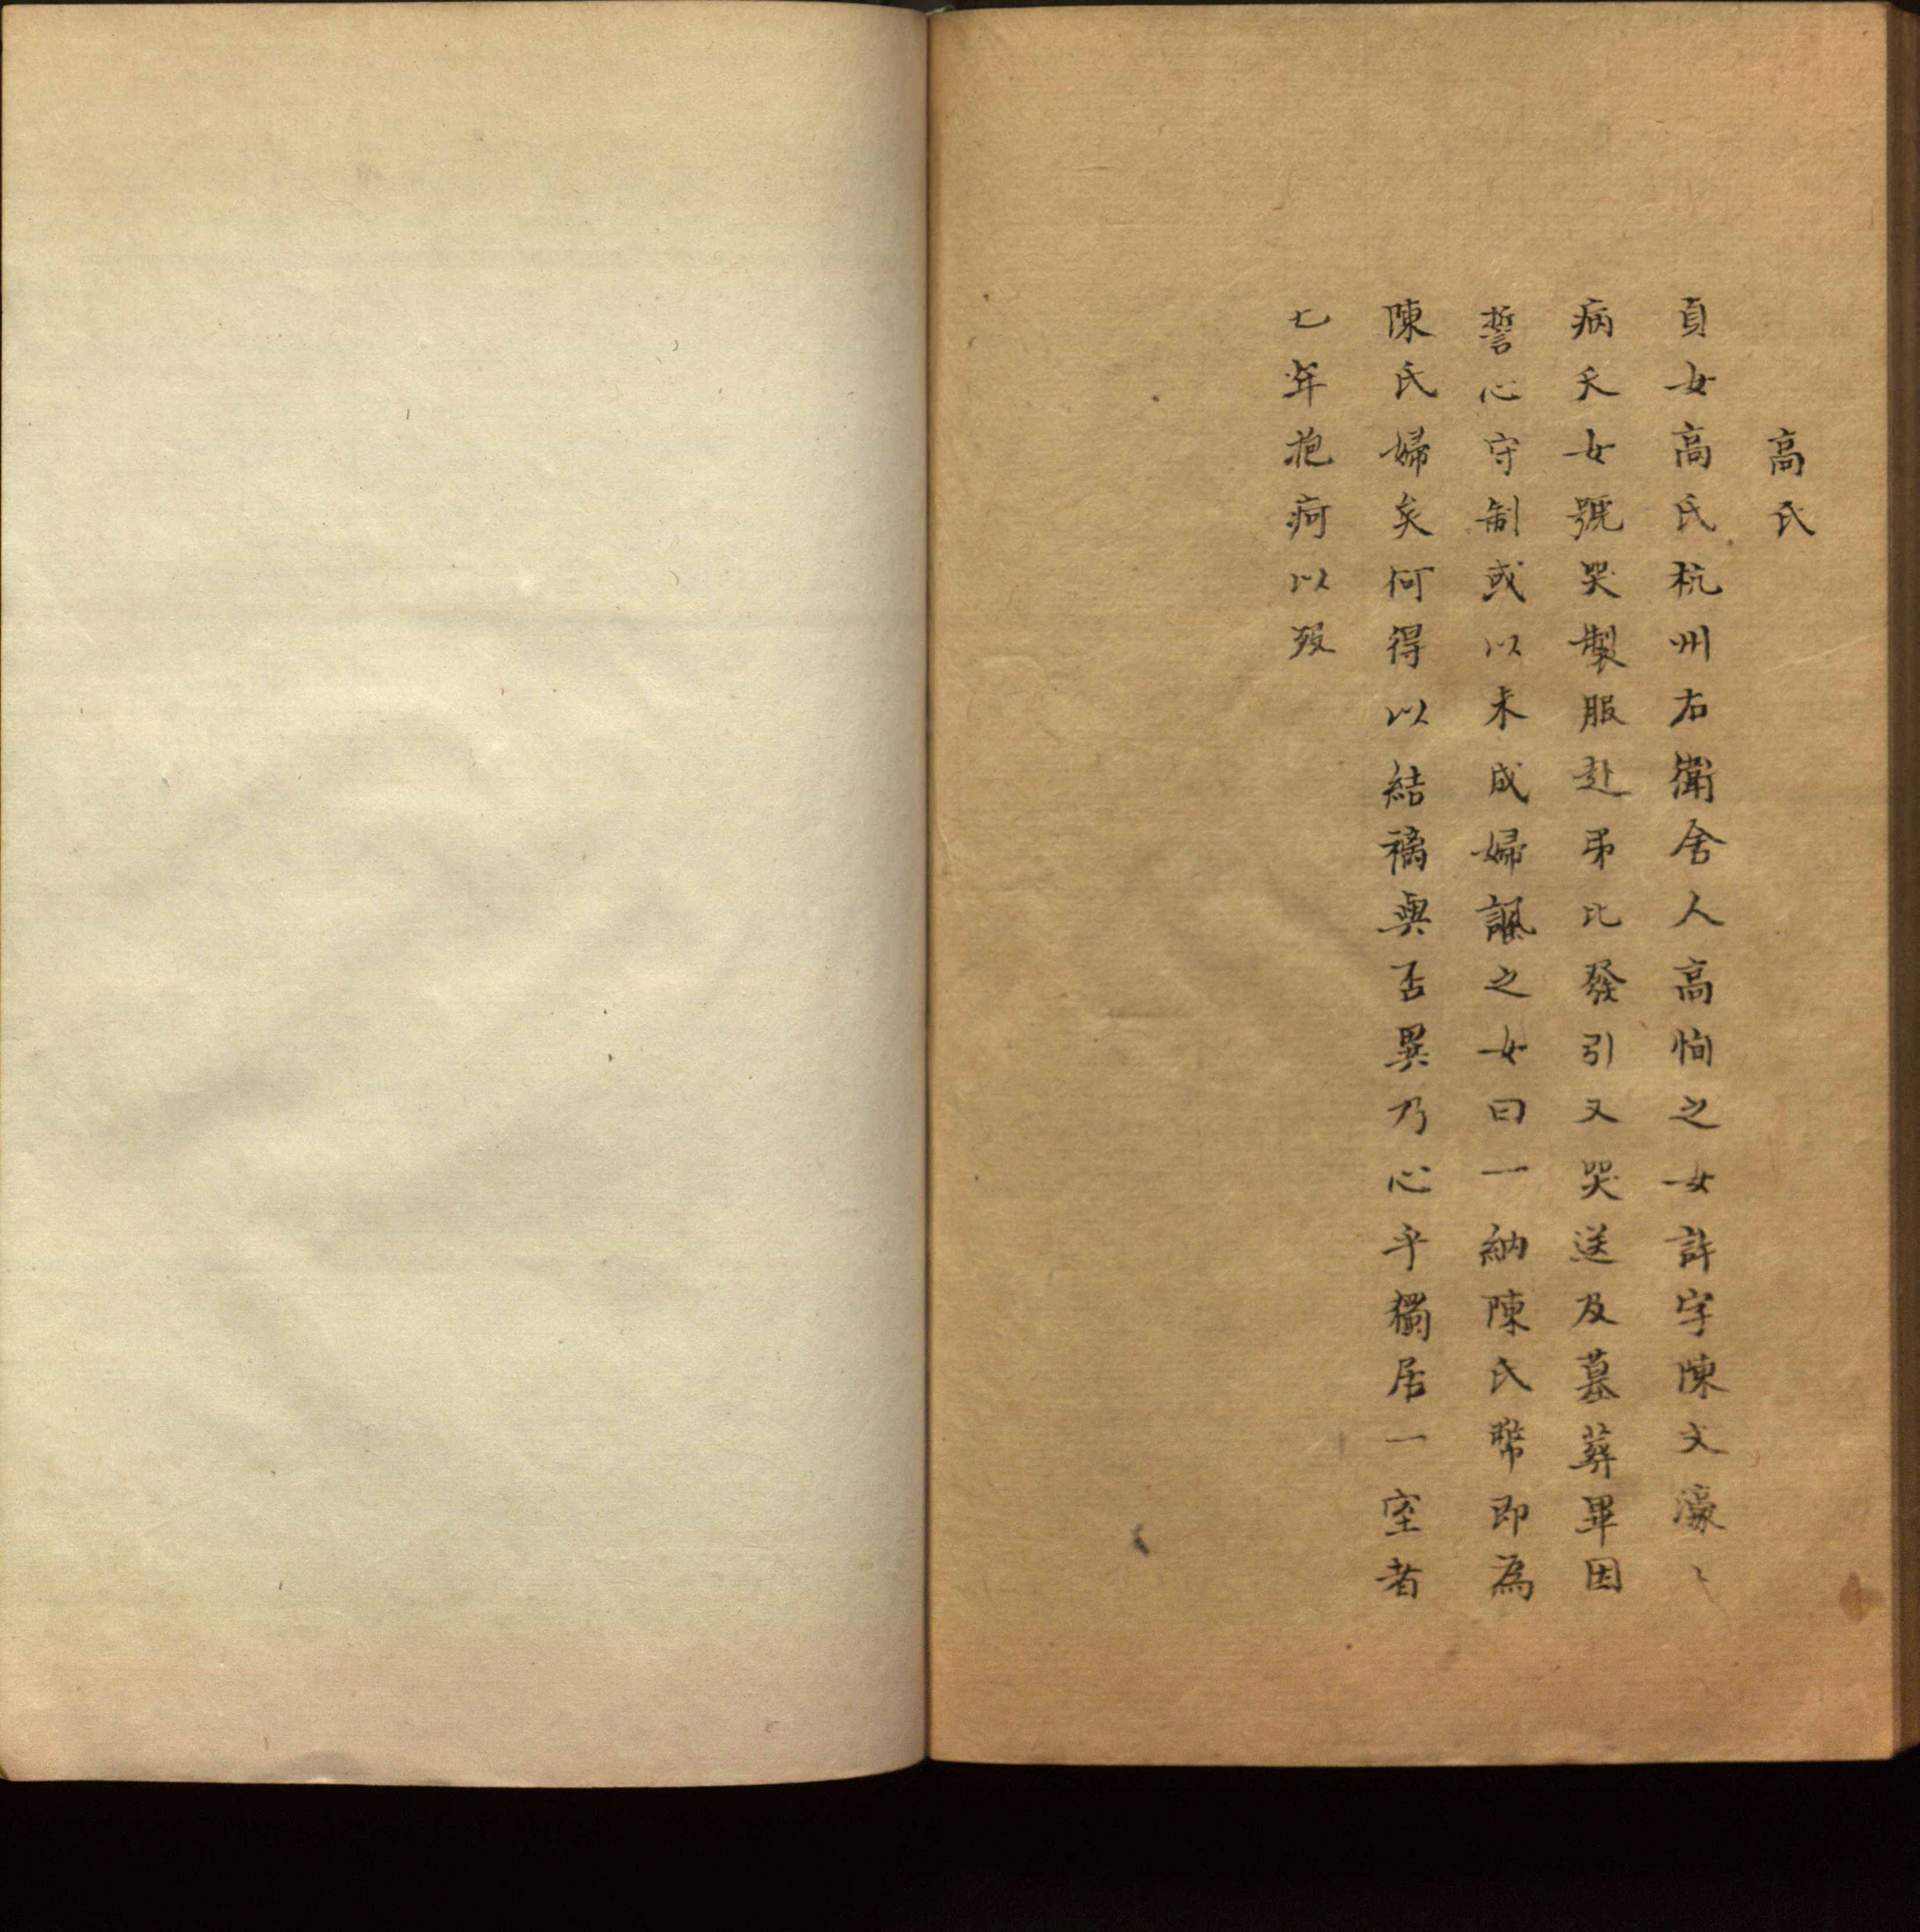 高氏
貞女高氏杭州右衛舍人高恂之女許字陳文濠〻
病夭女號哭製服赴弔比發引又哭送及墓葬畢因
誓心守制或以未成婦諷之女曰一納陳氏幣即為
陳氏婦矣何得以結褵與否異乃心乎獨居一室者
七年抱痾以歿